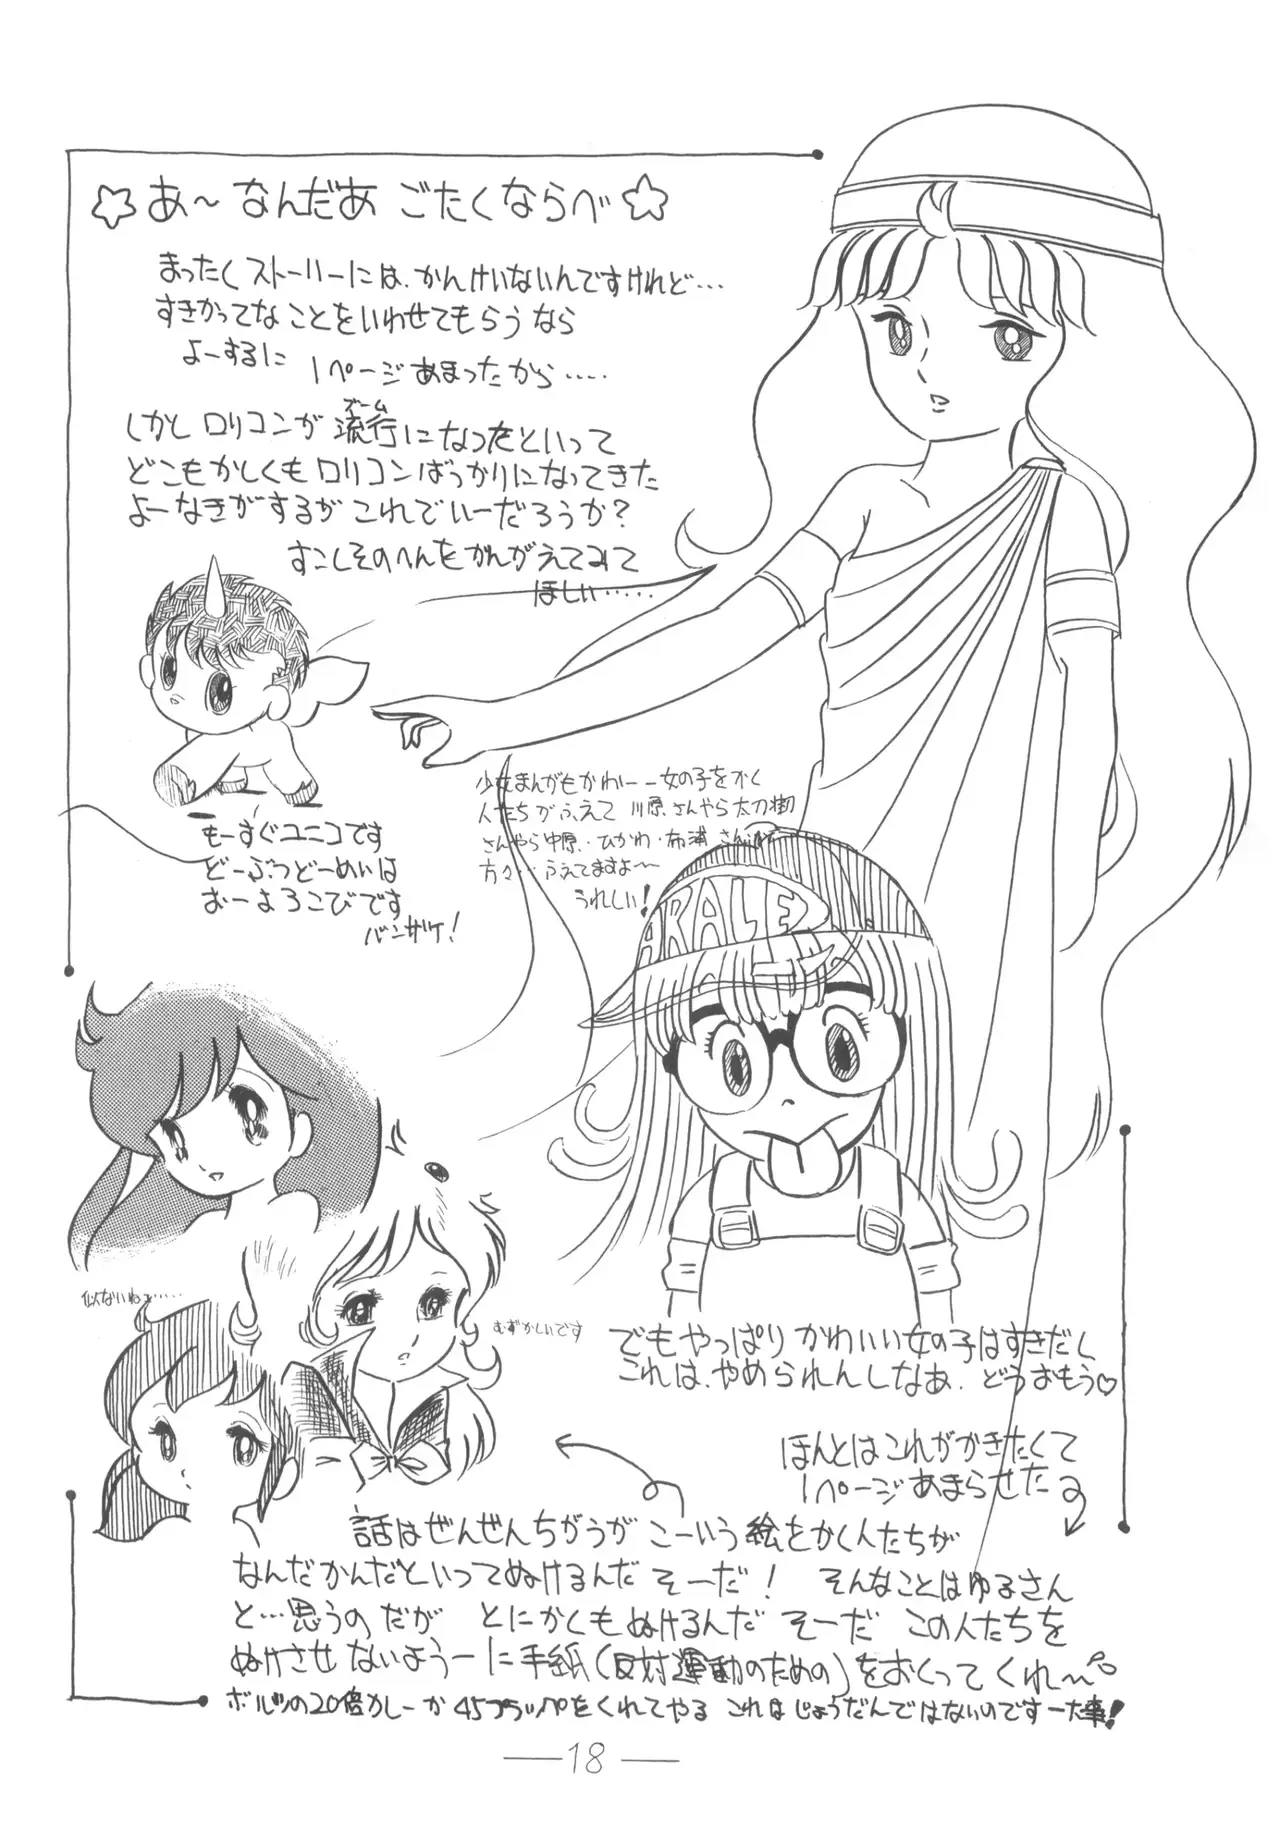 ☆ あ〜 なんだあ ごたくならべ ☆
まったくストーリーには、かんけいないんですけれど…
すきかってな ことをいわせてもらうなら
よーするに 1ページあまったから……
しかし ロリコンが 流行になったといって
ブーム
どこもかしくも ロリコンばっかりになってきた
よーなきがするが これでいーだろうか?
すこしそのへんをかんがえてみて
ほしい……
少女まんがもかわいー女の子をかく
人たちがふえて 川原さんやら太刀掛
さんやら中原・ひかわ・布浦さん
方々‥ふえてますよ〜
うれしい!
もーすぐユニコです
どーぶつどーめいは
おーよろこびです
バンザイ!
ARALE
似ないねぇ……
むずかしいです
でもやっぱり かわいい女の子はすきだし
これは、やめられんしなあ. どうおもう♡
ほんとはこれがかきたくて
1ページあまらせた
話はぜんぜんちがうが こーいう絵をかく人たちが
なんだかんだといってぬけるんだ そーだ! そんなことはゆるさん
と…思うのだが とにかくもぬけるんだ そーだ この人たちを
ぬけさせ ないよう一に手紙(反対運動のための)をおくってくれ〜
ボルツの20倍カレーか 45アラッペをくれてやる これはじょうだんではないのです 一大事!
— 18 —